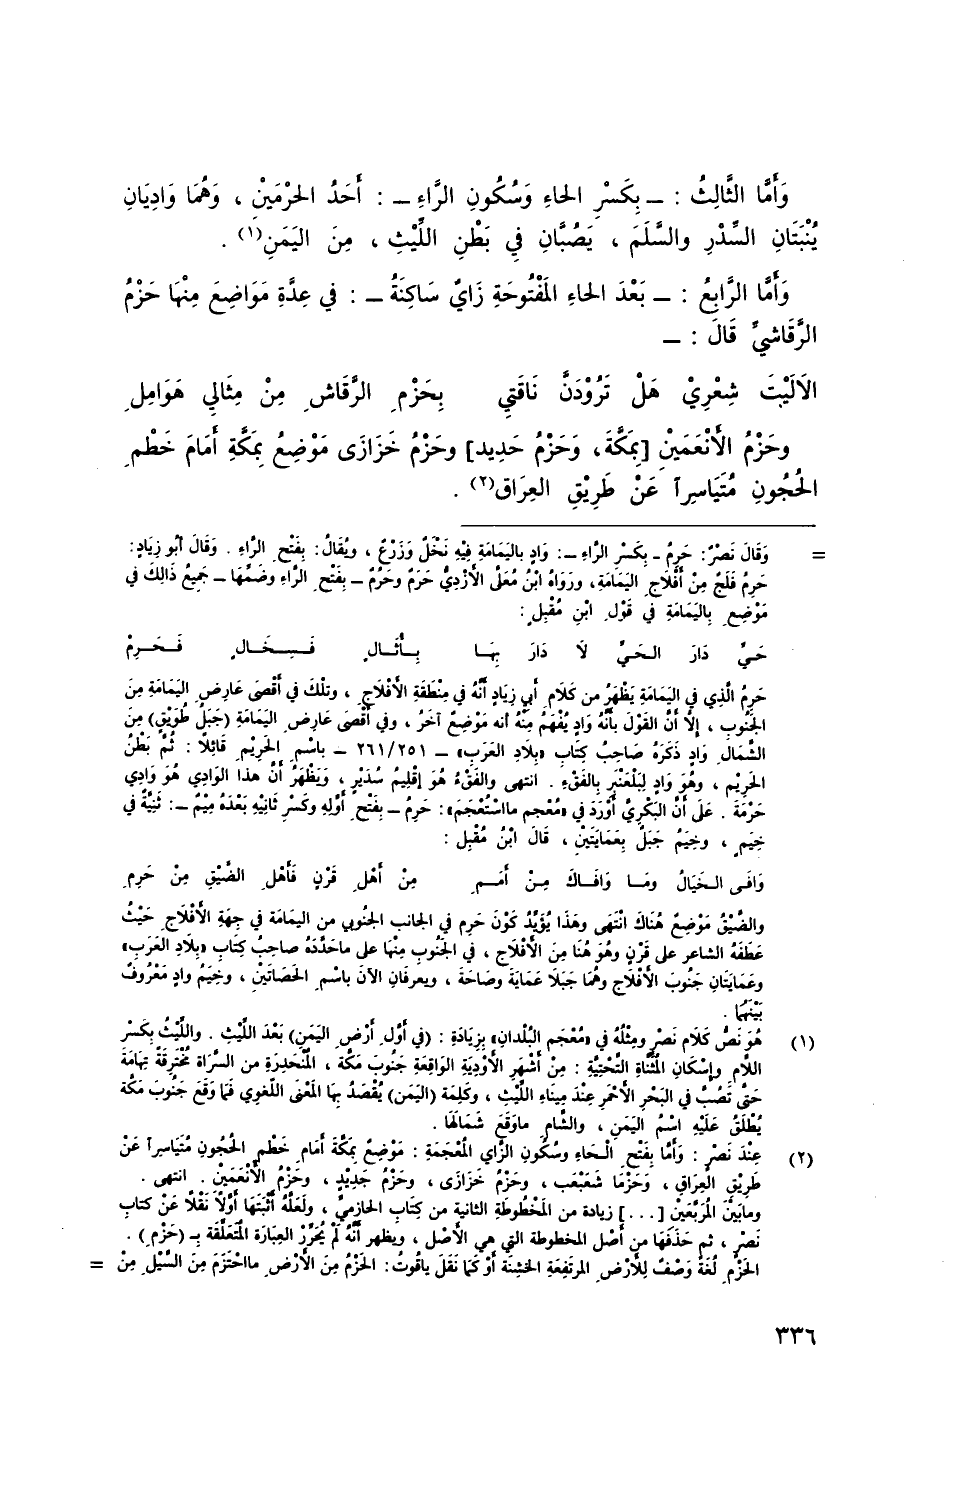 وَأَمَّا الثَّالِثُ : ـ بِكَسْرِ الحاءِ وَسُكُونِ الرَّاءِ ـ : أَحَدُ الحَرْمَينْ ، وَهُمَا وَادِيَانِ
يُنْبَتَانِ السِّدْرِ والسَّلَمَ ، يَصُبَّانِ في بَطْنِ اللِّيْثِ ، مِنَ اليَمَنِ(١) .
وَأَمَّا الرَّابعُ : ـ بَعْدَ الحاءِ المَفْتُوحَةِ زَايٌ سَاكِنَةٌ ـ : في عِدَّةِ مَوَاضِعَ مِنْهَا حَزْمُ
الرَّقَاشيِّ قَالَ : ـ
الَالَيْتَ شِعْرِيْ هَلْ تَرُوْدَنَّ نَاقَتِي بِحَزْمِ الرَّقَاشِ مِنْ مِثَالي هَوَامِلِ
وحَزْمُ الأَنْعَمَينِْ [بِمَكَّةَ، وَحَزْمُ حَدِيد] وحَزْمُ خَزَازَى مَوْضِعٌ بِمَكَّةِ أَمَامَ خَطْمِ
الحُجُونِ مُتَيَاسِراً عَنْ طَرِيْقِ العِرَاق(٢) .
= وَقَالَ نَصْرٌ: حَرِمٌ ـ بِكَسْرِ الرَّاءِ ـ: وَادٍ باليَمَامَةِ فِيْهِ نَخْلٌ وَزَرْعٌ ، ويُقَالُ: بِفَتْحِ الرَّاءِ . وَقَالَ أَبُو زِيَادٍ:
حَرِمٌ فَلَجٌ مِنْ أَفْلَاجِ اليَمَامَةِ، ورَوَاهُ ابْنُ مُعَلَّى الأَزْدِيُّ حَرَمٌ وحَرُمٌ ـ بِفَتْحِ الرَّاءِ وضَمِّهَا ـ جَمِيعُ ذَالِكَ في
مَوْضِعٍ بِاليَمَامَةِ في قَوْلِ ابْنِ مُقْبِلٍ:
حَيِّ دَارَ الحَيِّ لَا دَارَ بِهَا بِأَثَالٍ فَسِخَالٍ فَحَرِمْ
حَرِمُ الَّذِي في اليَمَامَةِ يَظْهَرُ من كَلَامِ أَبي زِيَادٍ أَنَّهُ في مِنْطَقَةِ الأَفْلَاجِ ، وتِلْكَ في أَقْصَى عَارِضِ اليَمَامَةِ مِنَ
الجَنُوبِ ، إِلَّا أَنَّ القَوْلَ بأَنَّهُ وَادٍ يُفْهَمُ مِنْهُ أنه مَوْضِعٌ آخَرُ ، وفي أَقْصَى عَارِضِ اليَمَامَةِ (جَبَلُ طُوَيْقٍ) مِنَ
الشَّمَالِ وَادٍ ذَكَرَهُ صَاحِبُ كِتَابِ «بِلَادِ العَرَبِ» ـ ٢٦١/٢٥١ ـ باسْمِ الحَرِيْمِ قَائِلًا : ثُمَّ بَطْنُ
الحَرِيْمِ ، وهُوَ وَادٍ لِبَلْعَنْبَرِ بِالفَقْءِ . انتهى والفَقْءُ هُوَ إِقْلِيمُ سُدَيْرٍ ، وَيَظْهَرُ أَنَّ هذا الوَادِي هُوَ وَادِي
حَرْمَةَ . عَلَى أَنَّ البَكْرِيَّ أَوْرَدَ في «مُعْجمِ مااسْتُعْجَمَ»: حَرِمٌ ـ بِفَتْحِ أَوَّلِهِ وكَسْرِ ثَانِيْهِ بَعْدَهُ مِيْمٌ ـ: ثَنِيَّةٌ في
خِيَمٍ ، وخِيَمُ جَبَلٌ بِعَمَايَتَيْنْ ، قَالَ ابْنُ مُقْبِل :
وَافَى الخَيَالُ ومَا وَافَاكَ مِنْ أَمَمِ مِنْ أَهْلِ قَرْنٍ فَأَهْلِ الضَّيْقِ مِنْ حَرِمِ
والضَّيْقُ مَوْضِعٌ هُنَاكَ انْتَهَى وهَذا يُؤَيِّدُ كَوْنَ حَرِمٍ في الجانب الجنُوبي من اليَمَامَةِ في جِهَةِ الأَفْلَاجِ حَيْثُ
عَطَفَهُ الشاعر على قَرْنٍ وهُوَ هُنَا مِنَ الأَفْلَاج ، في الجَنُوبِ مِنْهَا على ماحَدَّدَهُ صاحِبُ كِتَابِ «بِلَادِ العَرَبِ»
وعَمَايَتَانِ جَنُوبَ الأَفْلَاجِ وهُمَا جَبَلَا عَمَايَةَ وصَاحَةَ ، ويعرفانِ الآنَ باسْمِ الحَصَاتَينْ ، وخِيَمُ وادٍ مَعْرُوفٌ
بَيْنَهُمَا .
(١) هُوَ نَصُّ كَلَام نَصْرٍ ومِثْلُهُ في «مُعْجَم البُلْدانِ» بِزِيَادَةِ : (في أَوَّلِ أَرْضِ اليَمَنِ) بَعْدَ اللَّيْثِ . واللِّيْثُ بِكَسْرِ
اللَّامِ وإِسْكَانِ المُثَنَّاةِ التَّحْتِيَّةِ : مِنْ أَشْهَرِ الأَوْدِيَةِ الوَاقِعَةِ جَنُوبَ مَكَّةَ ، المُنْحَدِرَةِ من السَّرَاة مُخْتَرِقَةً تِهَامَةَ
حَتَّى تَصُبَّ في البَحْرِ الأَحْمَرِ عِنْدَ مِيناءِ اللِّيْثِ ، وكَلِمَة (اليَمَنِ) يُقْصَدُ بِهَا المَعْنَى اللغوي فَمَا وَقَعَ جَنُوبَ مَكَّةَ
يُطْلَقُ عَلَيْهِ اسْمُ اليَمَنِ ، والشَّامِ ماوَقَعَ شَمَالَهَا .
(٢) عِنْدَ نَصْرٍ : وَأَمَّا بِفَتْحِ الحَاءِ وسُكُونِ الزَّايِ المُعْجَمَةِ : مَوْضِعٌ بِمَكَّةَ أَمَامِ خَطْمِ الحُجُونِ مُتَيَاسِراً عَنْ
طَرِيْقِ العِرَاقِ ، وَحَزْمَا شَعَبْعَب ، وحَزْمُ خَزَازَى ، وحَزْمُ جَدِيْدٍ ، وحَزْمُ الأَنْعَمَينْ . انتهى .
ومابَينَْ المُرَبَّعَينْ [...] زيادة من المَخْطُوطَةِ الثانية من كِتَابِ الحازِمِيِّ ، ولَعَلَّهُ أَثْبَتَهَا أَوَّلًا نَقْلًا عَنْ كتابِ
نَصْرٍ ، ثم حَذَفَهَا من أَصْلِ المخطوطة التي هي الأَصْل ، ويظهر أَنَّهُ لَمْ يُحَرِّرْ العِبَارَة المُتَعَلِّقة بـ (حَزْمٍ) .
الحَزْمِ لُغَةً وَصْفٌ لِلأَرْضِ المرتَفِعَةِ الخشِنَة أَوْ كَمَا نَقَلَ ياقُوتُ : الحَزْمُ مِنَ الأَرْضِ مااحْتَزَمَ مِنَ السَّيْلِ مِنْ =
٣٣٦